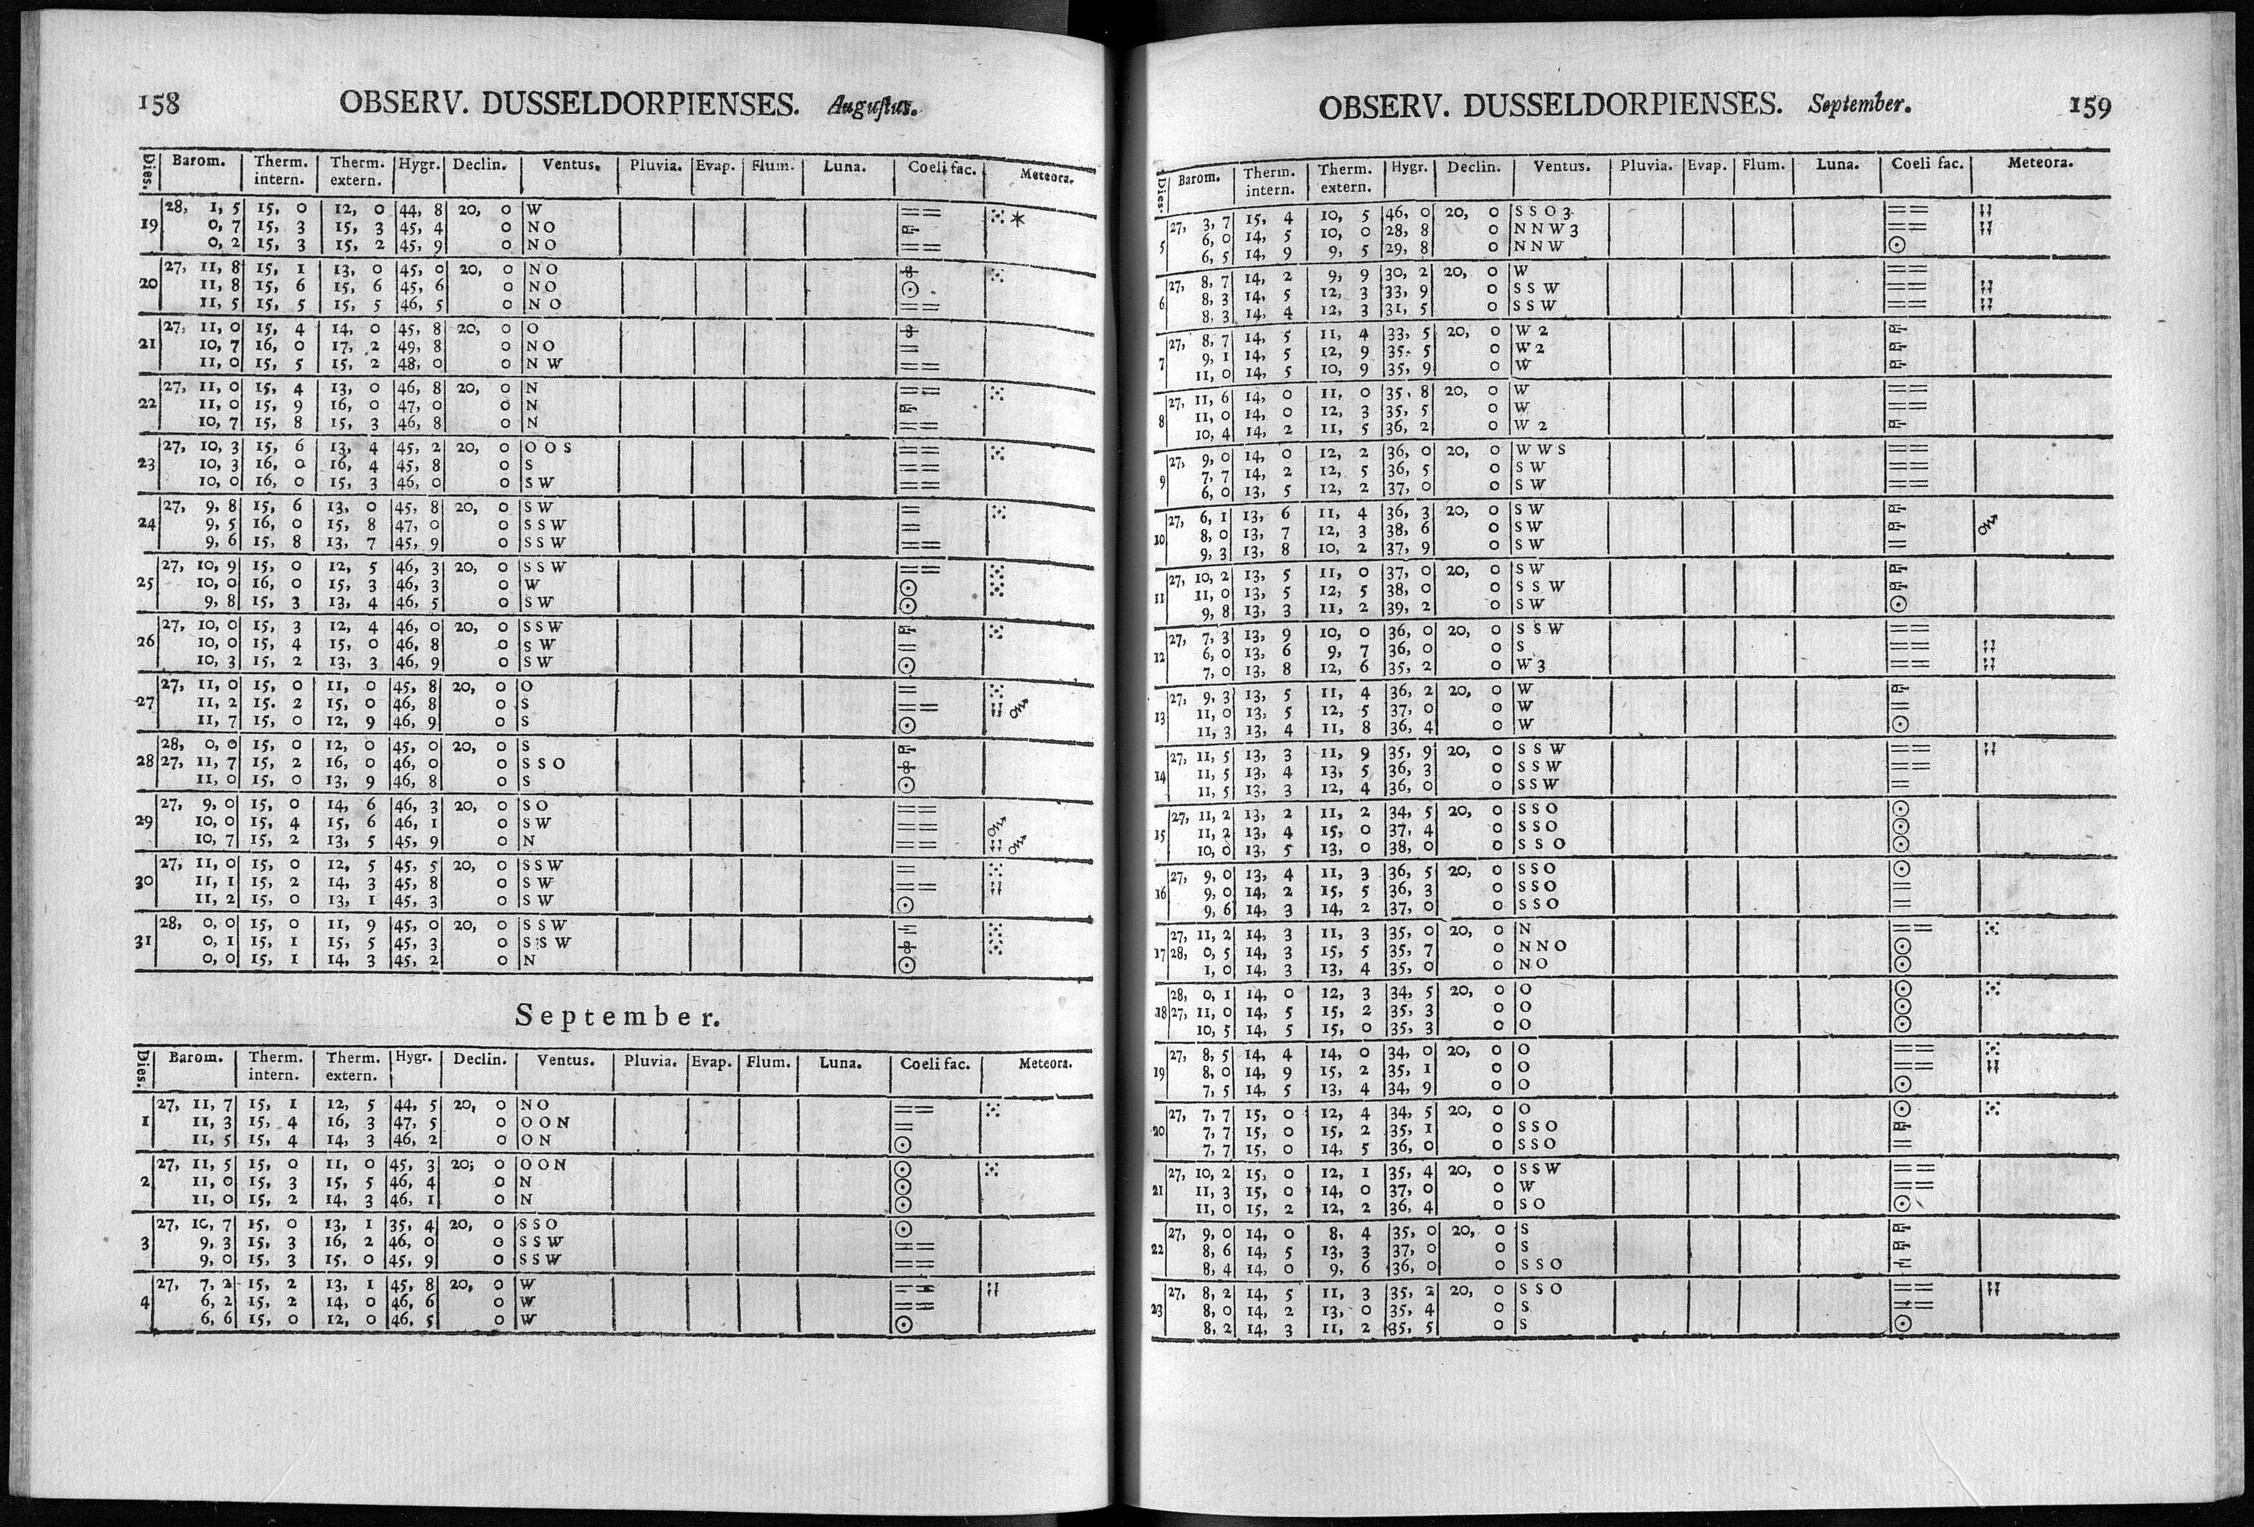 158 OBSERV. DUSSELDORPIENSES. Augustus.
Dies. Barom. Therm. intern. Therm. extern. Hygr. Declin. Ventus. Pluvia. Evap. Flum. Luna. Coeli fac. Meteora.
28, 1, 5 15, 0 12, 0 44, 8 20, 0 W
19 0, 7 15, 3 15, 3 45, 4 0 N O
0, 2 15, 3 15, 2 45, 9 0 N O
27, 11, 8 15, 1 13, 0 45, 0 20, 0 N O
20 11, 8 15, 6 15, 6 45, 6 0 N O
11, 5 15, 5 15, 5 46, 5 0 N O
27, 11, 0 15, 4 14, 0 45, 8 20, 0 O
21 10, 7 16, 0 17, 2 49, 8 0 N O
11, 0 15, 5 15, 2 48, 0 0 N W
27, 11, 0 15, 4 13, 0 46, 8 20, 0 N
22 11, 0 15, 9 16, 0 47, 0 0 N
10, 7 15, 8 15, 3 46, 8 0 N
27, 10, 3 15, 6 13, 4 45, 2 20, 0 O O S
23 10, 3 16, 0 16, 4 45, 8 0 S
10, 0 16, 0 15, 3 46, 0 0 S W
27, 9, 8 15, 6 13, 0 45, 8 20, 0 S W
24 9, 5 16, 0 15, 8 47, 0 0 S S W
9, 6 15, 8 13, 7 45, 9 0 S S W
27, 10, 9 15, 0 12, 5 46, 3 20, 0 S S W
25 10, 0 16, 0 15, 3 46, 3 0 W
9, 8 15, 3 13, 4 46, 5 0 S W
27, 10, 0 15, 3 12, 4 46, 0 20, 0 S S W
26 10, 0 15, 4 15, 0 46, 8 0 S W
10, 3 15, 2 13, 3 46, 9 0 S W
27, 11, 0 15, 0 11, 0 45, 8 20, 0 O
27 11, 2 15. 2 15, 0 46, 8 0 S
11, 7 15, 0 12, 9 46, 9 0 S
28, 0, 0 15, 0 12, 0 45, 0 20, 0 S
28 27, 11, 7 15, 2 16, 0 46, 0 0 S S O
11, 0 15, 0 13, 9 46, 8 0 S
27, 9, 0 15, 0 14, 6 46, 3 20, 0 S O
29 10, 0 15, 4 15, 6 46, 1 0 S W
10, 7 15, 2 13, 5 45, 9 0 N
27, 11, 0 15, 0 12, 5 45, 5 20, 0 S S W
30 11, 1 15, 2 14, 3 45, 8 0 S W
11, 2 15, 0 13, 1 45, 3 0 S W
28, 0, 0 15, 0 11, 9 45, 0 20, 0 S S W
31 0, 1 15, 1 15, 5 45, 3 0 S S W
0, 0 15, 1 14, 3 45, 2 0 N
September.
Dies. Barom. Therm. intern. Therm. extern. Hygr. Declin. Ventus. Pluvia. Evap. Flum. Luna. Coeli fac. Meteora.
27, 11, 7 15, 1 12, 5 44, 5 20, 0 N O
1 11, 3 15, 4 16, 3 47, 5 0 O O N
11, 5 15, 4 14, 3 46, 2 0 O N
27, 11, 5 15, 0 11, 0 45, 3 20; 0 O O N
2 11, 0 15, 3 15, 5 46, 4 0 N
11, 0 15, 2 14, 3 46, 1 0 N
27, 10, 7 15, 0 13, 1 35, 4 20, 0 S S O
3 9, 3 15, 3 16, 2 46, 0 0 S S W
9, 0 15, 3 15, 0 45, 9 0 S S W
27, 7, 2 15, 2 13, 1 45, 8 20, 0 W
4 6, 2 15, 2 14, 0 46, 6 0 W
6, 6 15, 0 12, 0 46, 5 0 W
OBSERV. DUSSELDORPIENSES. September. 159
Dies. Barom. Therm. intern. Therm. extern. Hygr. Declin. Ventus. Pluvia. Evap. Flum. Luna. Coeli fac. Meteora.
27, 3, 7 15, 4 10, 5 46, 0 20, 0 S S O 3
6, 0 14, 5 10, 0 28, 8 0 N N W 3
5 6, 5 14, 9 9, 5 29, 8 0 N N W
27, 8, 7 14, 2 9, 9 30, 2 20, 0 W
6 8, 3 14, 5 12, 3 33, 9 0 S S W
8, 3 14, 4 12, 3 31, 5 0 S S W
27, 8, 7 14, 5 11, 4 33, 5 20, 0 W 2
7 9, 1 14, 5 12, 9 35. 5 0 W 2
11, 0 14, 5 10, 9 35, 9 0 W
27, 11, 6 14, 0 11, 0 35, 8 20, 0 W
8 11, 0 14, 0 12, 3 35, 5 0 W
10, 4 14, 2 11, 5 36, 2 0 W 2
27, 9, 0 14, 0 12, 2 36, 0 20, 0 W W S
9 7, 7 14, 2 12, 5 36, 5 0 S W
6, 0 13, 5 12, 2 37, 0 0 S W
27, 6, 1 13, 6 11, 4 36, 3 20, 0 S W
10 8, 0 13, 7 12, 3 38, 6 0 S W
9, 3 13, 8 10, 2 37, 9 0 S W
27, 10, 2 13, 5 11, 0 37, 0 20, 0 S W
11 11, 0 13, 5 12, 5 38, 0 0 S S W
9, 8 13, 3 11, 2 39, 2 0 S W
27, 7, 3 13, 9 10, 0 36, 0 20, 0 S S W
12 6, 0 13, 6 9, 7 36, 0 0 S
7, 0 13, 8 12, 6 35, 2 0 W 3
27, 9, 3 13, 5 11, 4 36, 2 20, 0 W
13 11, 0 13, 5 12, 5 37, 0 0 W
11, 3 13, 4 11, 8 36, 4 0 W
27, 11, 5 13, 3 11, 9 35, 9 20, 0 S S W
14 11, 5 13, 4 13, 5 36, 3 0 S S W
11, 5 13, 3 12, 4 36, 0 0 S S W
27, 11, 2 13, 2 11, 2 34, 5 20, 0 S S O
15 11, 2 13, 4 15, 0 37, 4 0 S S O
10, 0 13, 5 13, 0 38, 0 0 S S O
27, 9, 0 13, 4 11, 3 36, 5 20, 0 S S O
16 9, 0 14, 2 15, 5 36, 3 0 S S O
9, 6 14, 3 14, 2 37, 0 0 S S O
27, 11, 2 14, 3 11, 3 35, 0 20, 0 N
17 28, 0, 5 14, 3 15, 5 35, 7 0 N N O
1, 0 14, 3 13, 4 35, 0 0 N O
28, 0, 1 14, 0 12, 3 34, 5 20, 0 O
18 27, 11, 0 14, 5 15, 2 35, 3 0 O
10, 5 14, 5 15, 0 35, 3 0 O
27, 8, 5 14, 4 14, 0 34, 0 20, 0 O
19 8, 0 14, 9 15, 2 35, 1 0 O
7, 5 14, 5 13, 4 34, 9 0 O
27, 7, 7 15, 0 12, 4 34, 5 20, 0 O
20 7, 7 15, 0 15, 2 35, 1 0 S S O
7, 7 15, 0 14, 5 36, 0 0 S S O
27, 10, 2 15, 0 12, 1 35, 4 20, 0 S S W
21 11, 3 15, 0 14, 0 37, 0 0 W
11, 0 15, 2 12, 2 36, 4 0 S O
27, 9, 0 14, 0 8, 4 35, 0 20, 0 S
22 8, 6 14, 5 13, 3 37, 0 0 S
8, 4 14, 0 9, 6 36, 0 0 S S O
27, 8, 2 14, 5 11, 3 35, 2 20, 0 S S O
23 8, 0 14, 2 13, 0 35, 4 0 S
8, 2 14, 3 11, 2 35, 5 0 S